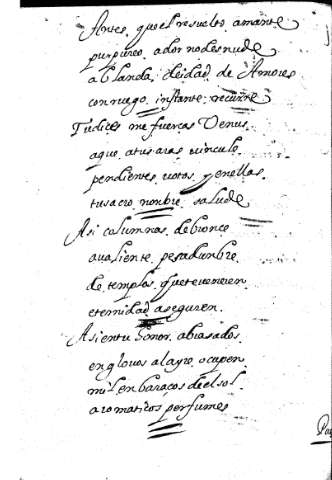 Antes, que el resuelto amante
purpureo adorno desnude
a blanda, deidad de Amores
con ruego, instante, recurre
Tu dices me fuercas Venus
a que a tus aras vincule
pendientes votos, y en ellas
tu sacro nombre salude
Asi columnas de bronce
a valiente pesadunbre
de templos, que te veneren
eternidad aseguren.
Asi en tu honor abrasados
en glovos al ayre ocupen
mil enbaraços del sol
aromaticos perfumes